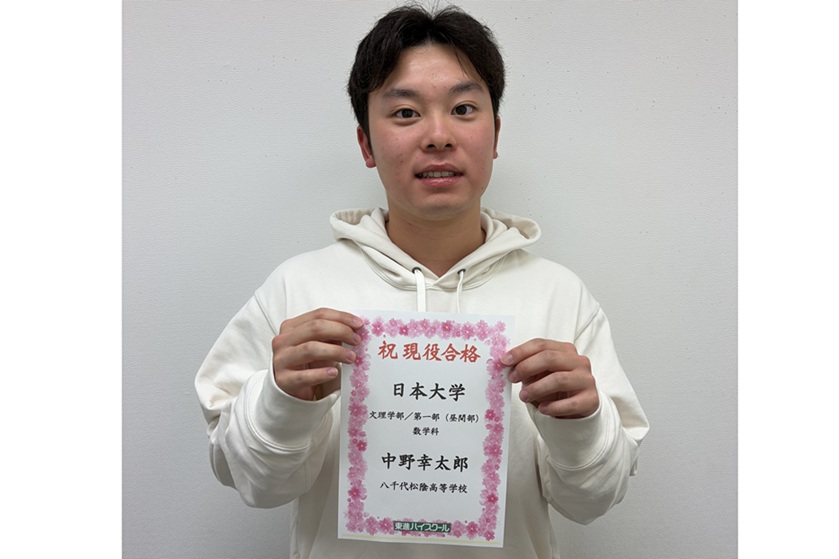 祝 現役合格
日本大学
文理学部／第一部（昼間部）
数学科
中野幸太郎
八千代松陰高等学校
東進ハイスクール